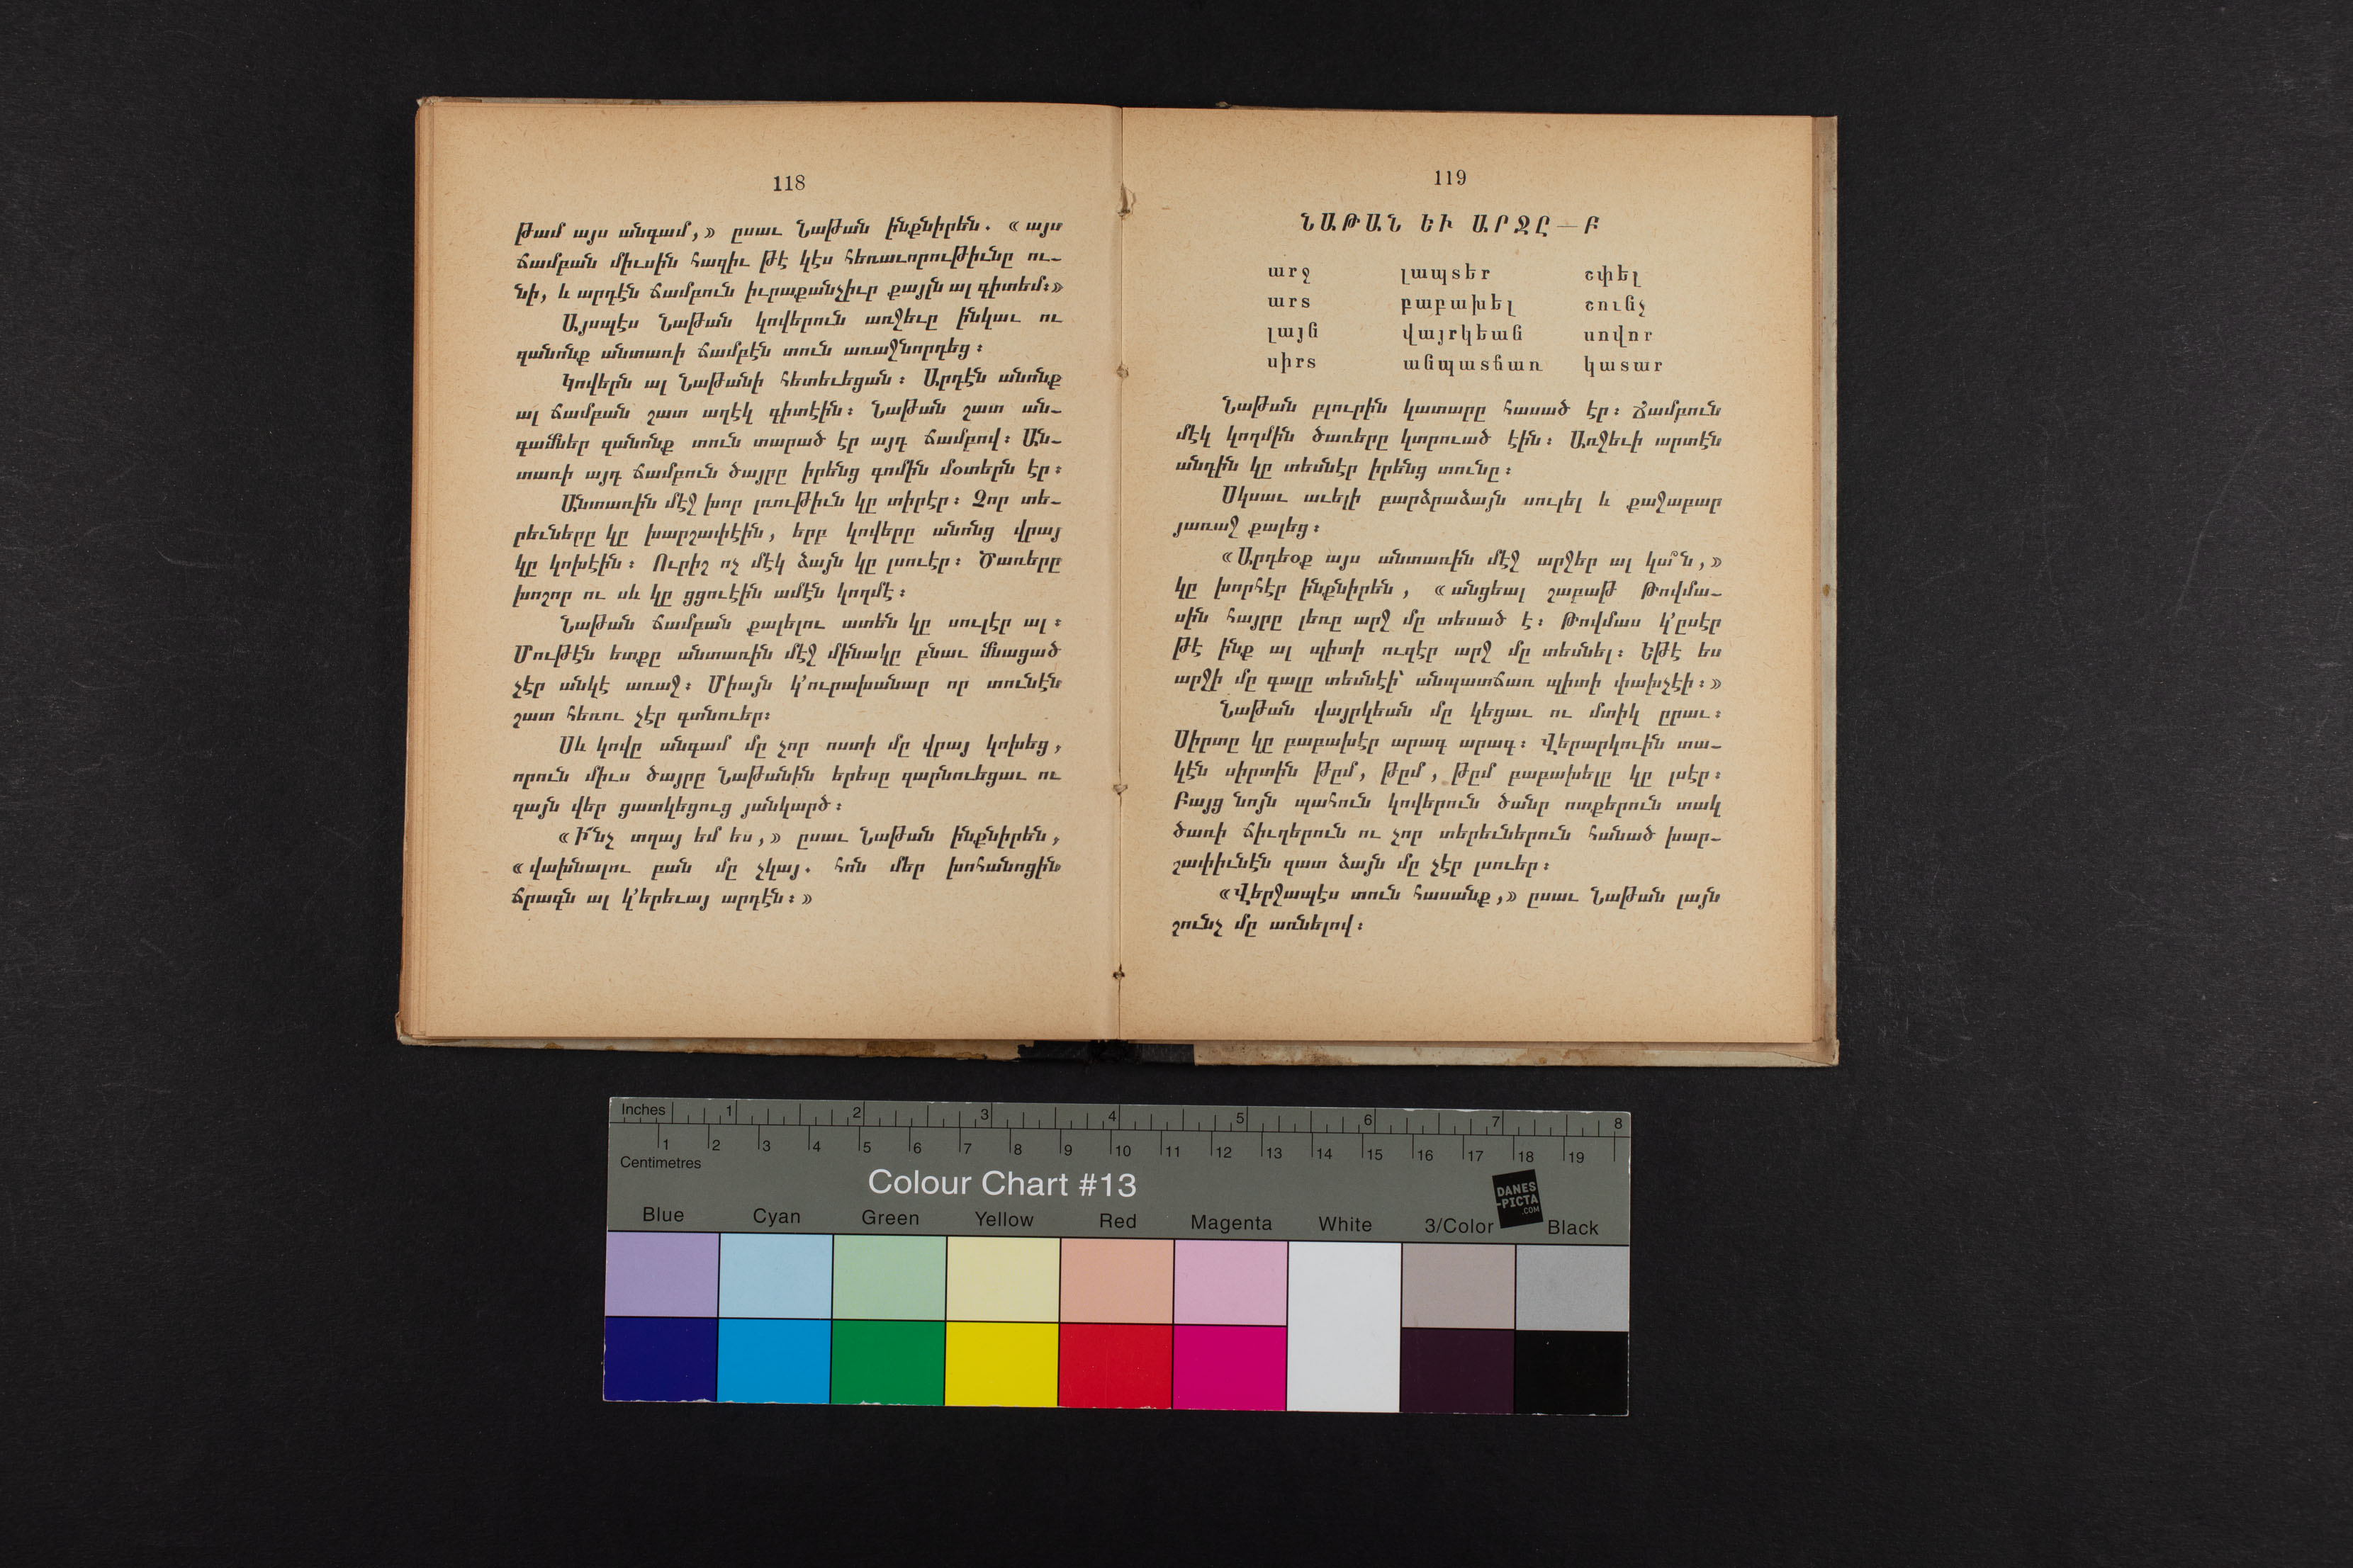 118
թամ այս անգամ,» ըսաւ Նաթան ինքնիրեն. «այս
ճամբան միւսին հազիւ թէ կէս հեռաւորութիւնը ու-
նի, և արդէն ճամբուն իւրաքանչիւր քայլն ալ գիտեմ։»
Այսպէս Նաթան կովերուն առջեւը ինկաւ ու
զանոնք անտառի ճամբէն տուն առաջնորդեց։
Կովերն ալ Նաթանի հետեւեցան։ Արդէն անոնք
ալ ճամբան շատ աղէկ գիտէին։ Նաթան շատ ան-
գամներ զանոնք տուն տարած էր այդ ճամբով։ Ան-
տառի այդ ճամբուն ծայրը իրենց գոմին մօտերն էր։
Անտառին մէջ խոր լռութիւն կը տիրէր։ Չոր տե-
րեւները կը խարշափէին, երբ կովերը անոնց վրայ
կը կոխէին։ Ուրիշ ոչ մէկ ձայն կը լսուէր։ Ծառերը
խոշոր ու սև կը ցցուէին ամէն կողմէ։
Նաթան ճամբան քալելու ատեն կը սուլէր ալ։
Մութէն ետքը անտառին մէջ մինակը բնաւ մնացած
չէր անկէ առաջ։ Միայն կ՚ուրախանար որ տունէն
շատ հեռու չէր գտնուեր։
Սև կովը անգամ մը չոր ոստի մը վրայ կոխեց,
որուն միւս ծայրը Նաթանին երեսը զարնուեցաւ ու
զայն վեր ցատկեցուց յանկարծ։
«Ի՜նչ տղայ եմ ես,» ըսաւ Նաթան ինքնիրեն,
«վախնալու բան մը չկայ. հոն մեր խոհանոցին
ճրագն ալ կ՚երեւայ արդէն։»
119
ՆԱԹԱՆ ԵՒ ԱՐՋԸ — Բ
արջ լապտեր շփել
արտ բաբախել շունչ
լայն վայրկեան սովոր
սիրտ անպատճառ կատար
Նաթան բլուրին կատարը հասած էր։ Ճամբուն
մէկ կողմին ծառերը կտրուած էին։ Առջեւի արտէն
անդին կը տեսնէր իրենց տունը։
Սկսաւ աւելի բարձրաձայն սուլել և քաջաբար
յառաջ քալեց։
«Արդեօք այս անտառին մէջ արջեր ալ կա՞ն,»
կը խորհէր ինքնիրեն, «անցեալ շաբաթ Թովմա-
սին հայրը լեռը արջ մը տեսած է։ Թովմաս կ՚ըսէր
թէ ինք ալ պիտի ուզէր արջ մը տեսնել։ Եթէ ես
արջի մը գալը տեսնէի՝ անպատճառ պիտի փախչէի։»
Նաթան վայրկեան մը կեցաւ ու մտիկ ըրաւ։
Սիրտը կը բաբախէր արագ արագ։ Վերարկուին տա-
կէն սիրտին թըմ, թըմ, թըմ բաբախելը կը լսէր։
Բայց նոյն պահուն կովերուն ծանր ոտքերուն տակ
ծառի ճիւղերուն ու չոր տերեւներուն հանած խար-
շափիւնէն զատ ձայն մը չէր լսուեր։
«Վերջապէս տուն հասանք,» ըսաւ Նաթան լայն
շունչ մը առնելով։
Inches 1 2 3 4 5 6 7 8
1 2 3 4 5 6 7 8 9 10 11 12 13 14 15 16 17 18 19
Centimetres
Colour Chart #13
DANES
-PICTA
.COM
Blue Cyan Green Yellow Red Magenta White 3/Color Black